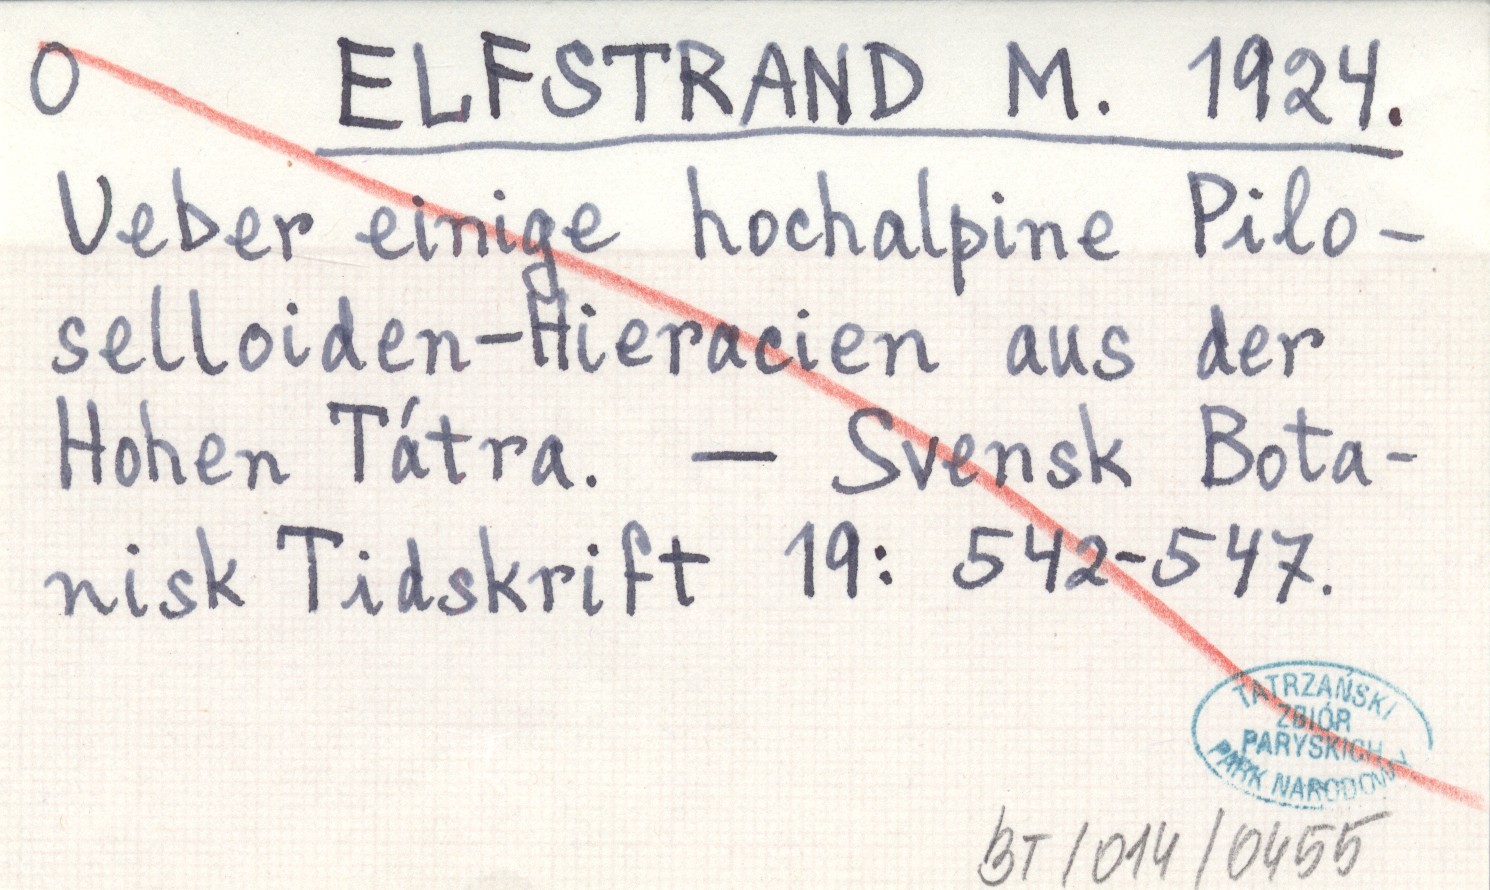 O ELFSTRAND M. 1924.
Ueber einige hochalpine Pilo-
selloiden-Hieracien aus der
Hohen Tátra. — Svensk Bota-
nisk Tidskrift 19: 542-547.
TATRZAŃSKI
ZBIÓR
PARYSKICH
PARK NARODOWY
BT/014/0455